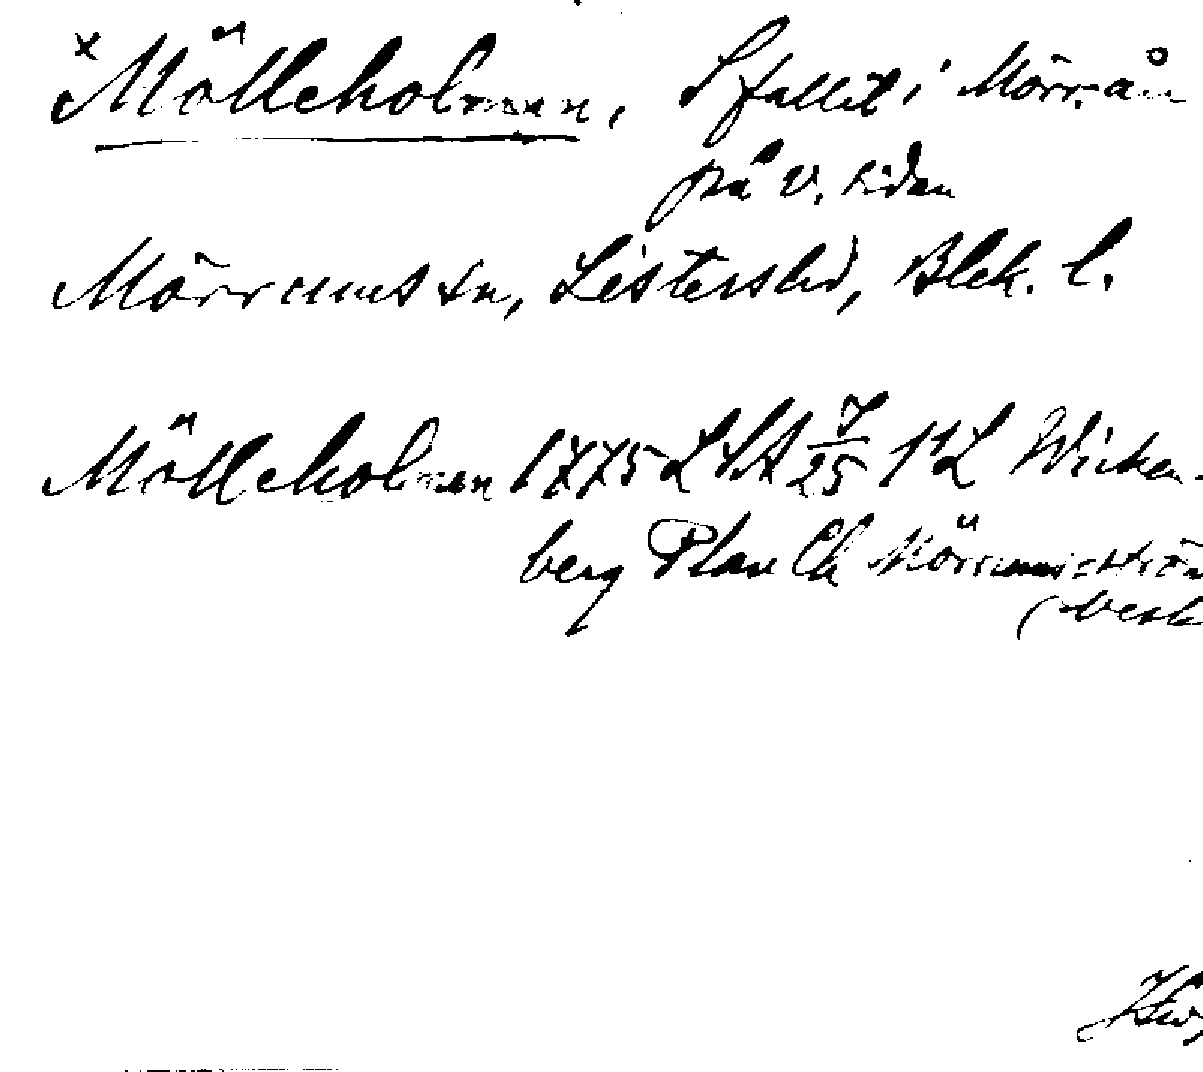 × Mölleholmen, S fallet i Mörr.ån
på v. sidan
Mörrums sn, Listers hd, Blek. l.
Mölleholmen 1775 LSA 7/25 1:2 Wicken-
berg Plan Ch Mörrumsströ
(besk